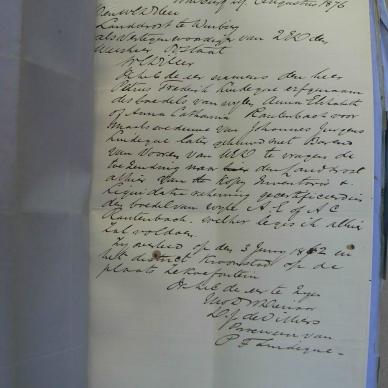 Winburg 19 Augustus 1876
Den WelEdHeer
Landdrost te Winburg
als Vertegenwoordiger van ZEd den
Weesheer O.V. Staat
WelEdHeer
Ik heb de eer namens den heer
Petrus Frederik Lindeque erfgenaam
des boedels van wijlen Anna Elizabeth
of Anna Catharina Rautenbach voor
maals weduwe van Johannes Jurgens
Lindeque later gehuwd met Barend
van Vooren van UEd te vragen de
toezending naar den Landdrost
alhier van de Kopij Inventaris &
Liquidatie rekening gecertificeerd in
den boedel van wijle A. E. of A. C.
Rautenbach. welker leges ik alhier
zal voldoen.
Zij overleed op den 3 Juny 1862 in
het district Kroonstad op de
plaats Lekkerfontein
Ik heb de eer te zijn
UwEd Dw Dienaar
D. J. de Villiers
van
P F Lindeque